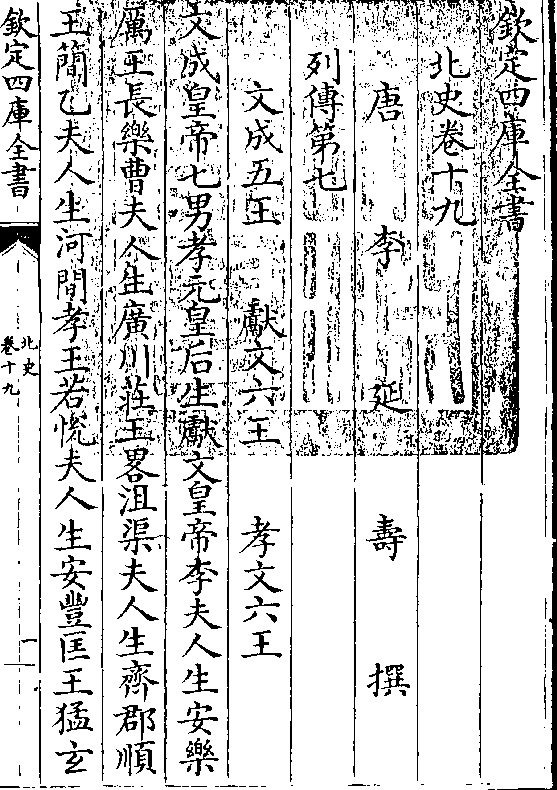 欽定四庫全書
北史卷十九
唐 李延壽 撰
列傳第七
文成五王 獻文六王 孝文六王
文成皇帝七男孝元皇后生獻文皇帝李夫人生安樂
厲王長樂曹夫人生廣川莊王畧沮渠夫人生齊郡順
王簡乙夫人生河間孝王若悦夫人生安豐匡王猛玄
欽定四庫全書
北史
卷十九
一